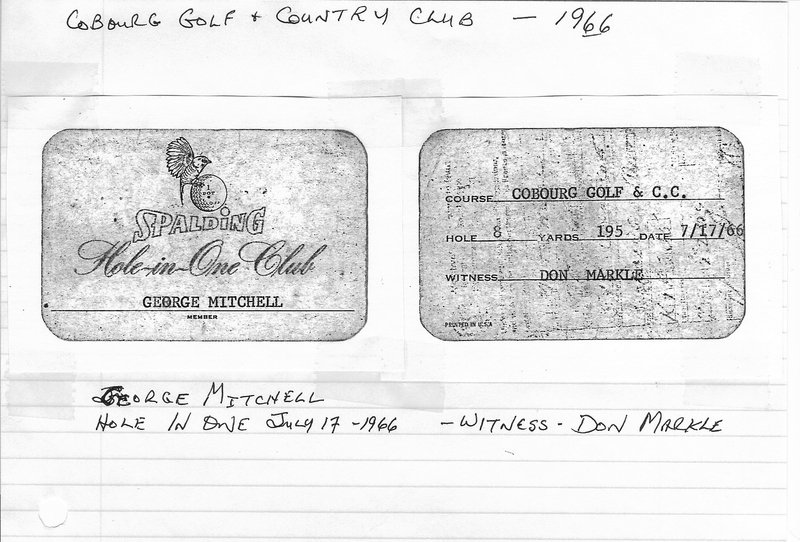 COBOURG GOLF & COUNTRY CLUB — 1966
DOT
SPALDING
Hole-in-One Club
GEORGE MITCHELL
MEMBER
COURSE COBOURG GOLF & C.C.
HOLE 8 YARDS 195 DATE 7/17/66
WITNESS DON MARKLE
PRINTED IN U.S.A
GEORGE MITCHELL
HOLE IN ONE JULY 17 - 1966 - WITNESS - DON MARKLE